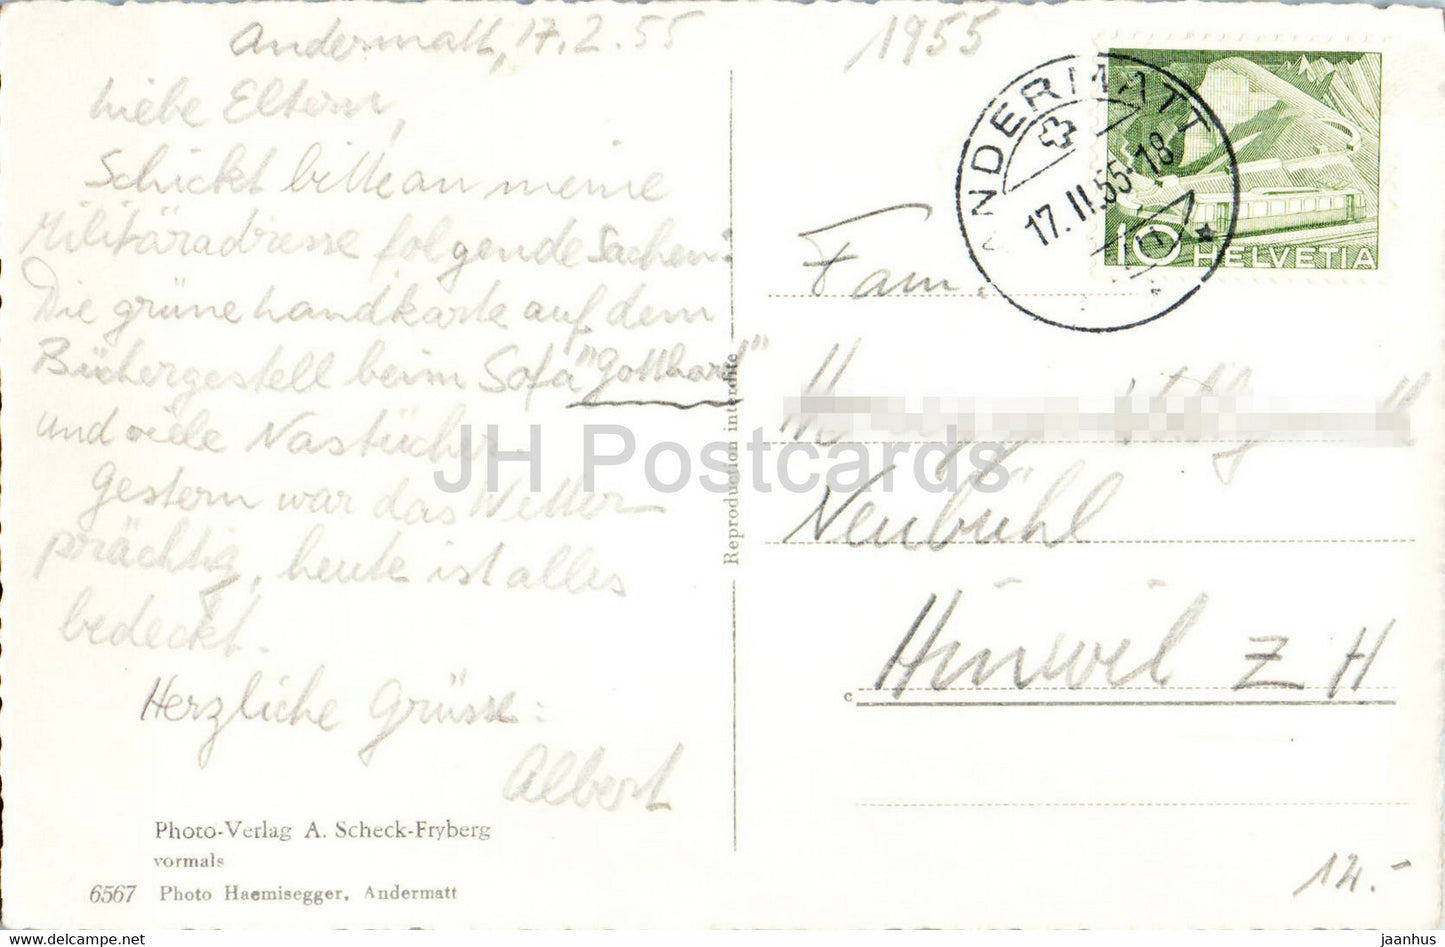 Andermatt, 17.2.55
Liebe Eltern,
Schickt bitte an meine
Militäradresse folgende Sachen:
Die grüne Handkarte auf dem
Büchergestell beim Sofa "Gotthard"
und viele Nastücher.
Gestern war das Wetter
prächtig, heute ist alles
bedeckt.
Herzliche Grüsse:
Albert
Photo-Verlag A. Scheck-Fryberg
vormals
6567 Photo Haemisegger, Andermatt
Reproduction interdite
1955
ANDERMATT
17.II.55-18
10 HELVETIA
Fam.
Neubühl
Hinwil ZH
c
12.-
JH Postcards
jaanhus